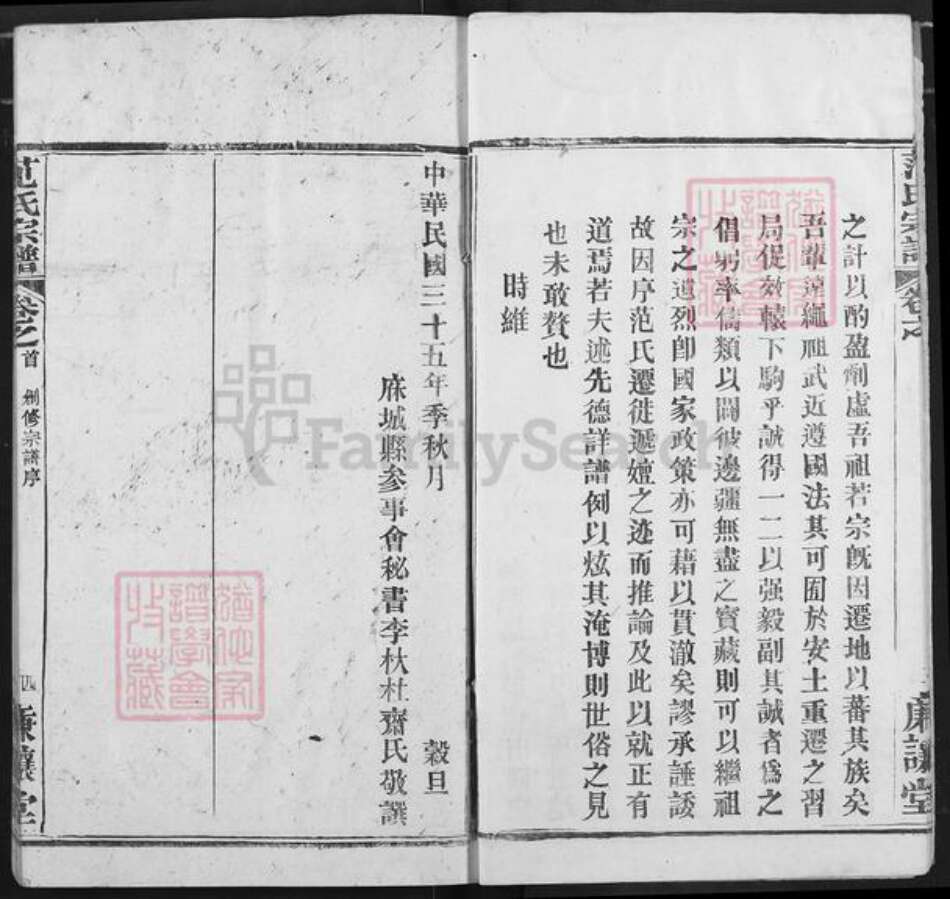 之計以酌盈劑虛吾祖若宗旣因遷地以蕃其族矣
吾輩遠繩祖武近遵國法其可囿於安土重遷之習
局促效轅下駒乎誠得一二以强毅副其誠者爲之
倡躬率儔類以闢彼邊疆無盡之寶藏則可以繼祖
宗之遺烈卽國家政策亦可藉以貫澈矣謬承諈諉
故因序范氏遷徙遞嬗之迹而推論及此以就正有
道焉若夫述先德詳譜例以炫其淹博則世俗之見
也未敢贊也
時維
中華民國三十五年季秋月 穀旦
麻城縣參事會秘書李杕杜齋氏敬譔
范氏宗譜 卷之首 創修宗譜序 四 廉讓堂
FamilySearch